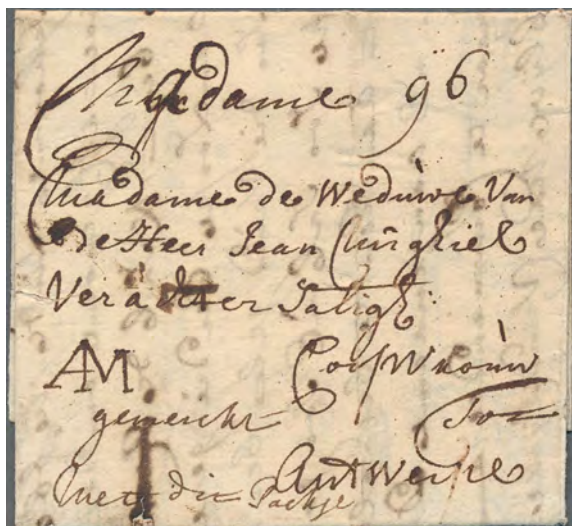 Madame 96
Madame de Weduwe Van
de Heer Jean Michiel
Verachter Saligh
AM Coopvrouw
gemerckt Tot
Antwerpe
mett dit Packje